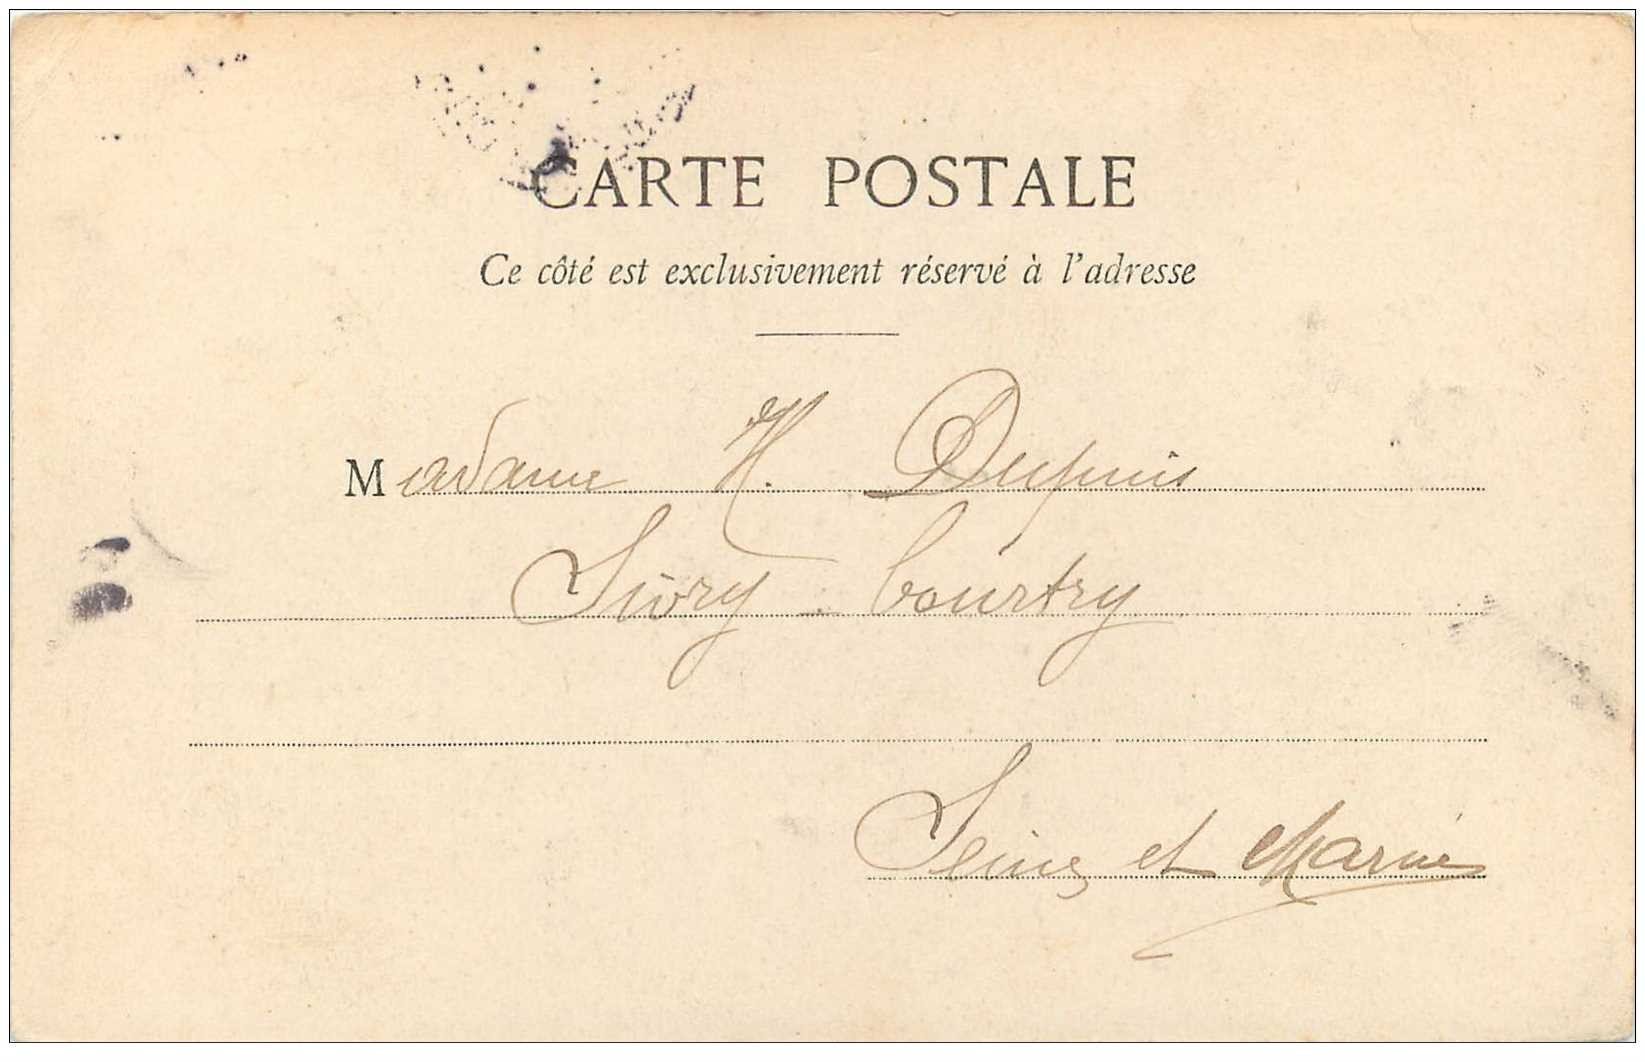 CARTE POSTALE
Ce côté est exclusivement réservé à l'adresse
Madame H. Dupuis
Sivry-Courtry
Seine et Marne